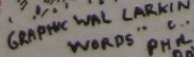 GRAPHIC WAL LARKIN
WORDS" C.
PHIL